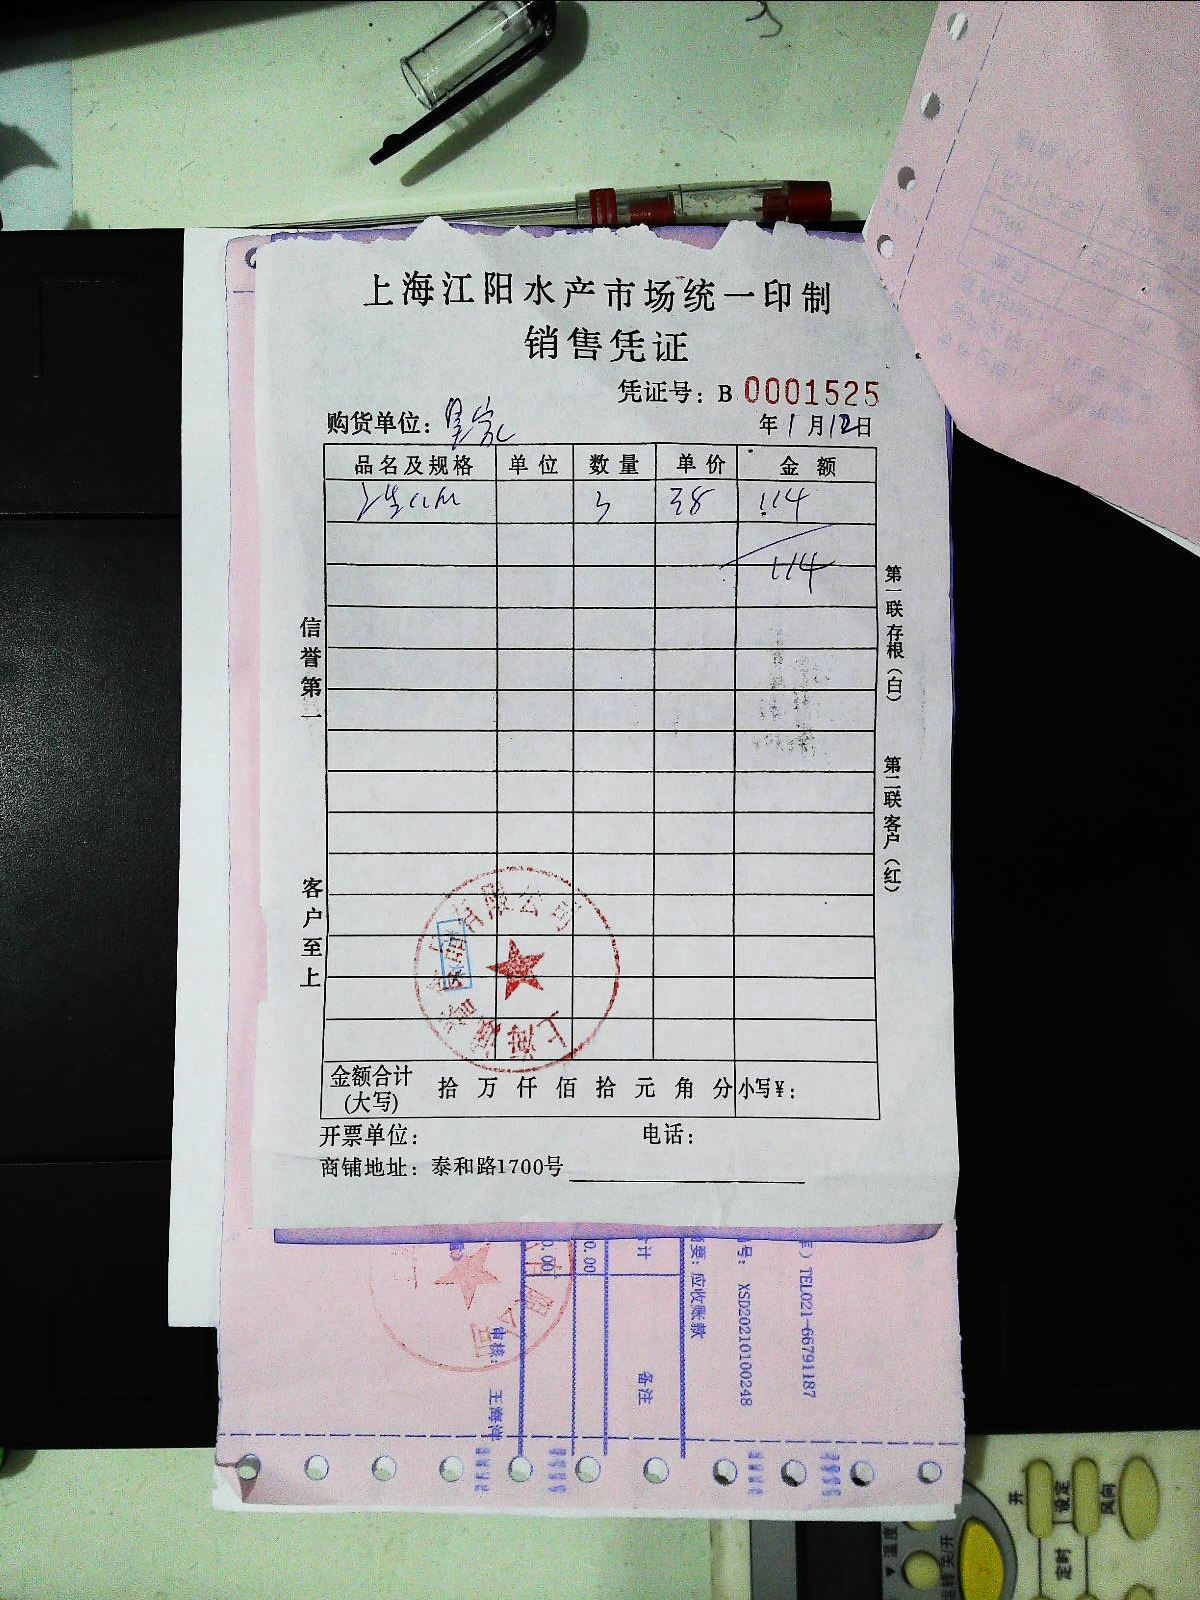 上海江阳水产市场统一印制
销售凭证
凭证号：B 0001525
购货单位：
年1月12日
品名及规格 单位 数量 单价 金额
3 38 114
114
信誉第一
客户至上
第一联存根（白）
第二联客户（红）
有限公司
上海
金额合计（大写） 拾 万 仟 佰 拾 元 角 分 小写¥：
开票单位： 电话：
商铺地址：泰和路1700号
TEL021-66791187
号：XSD20210100248
要：应收账款
合计
备注
0.00
0.00
审核：王海洋
限公司
开
设定
风向
定时
温度
关/开